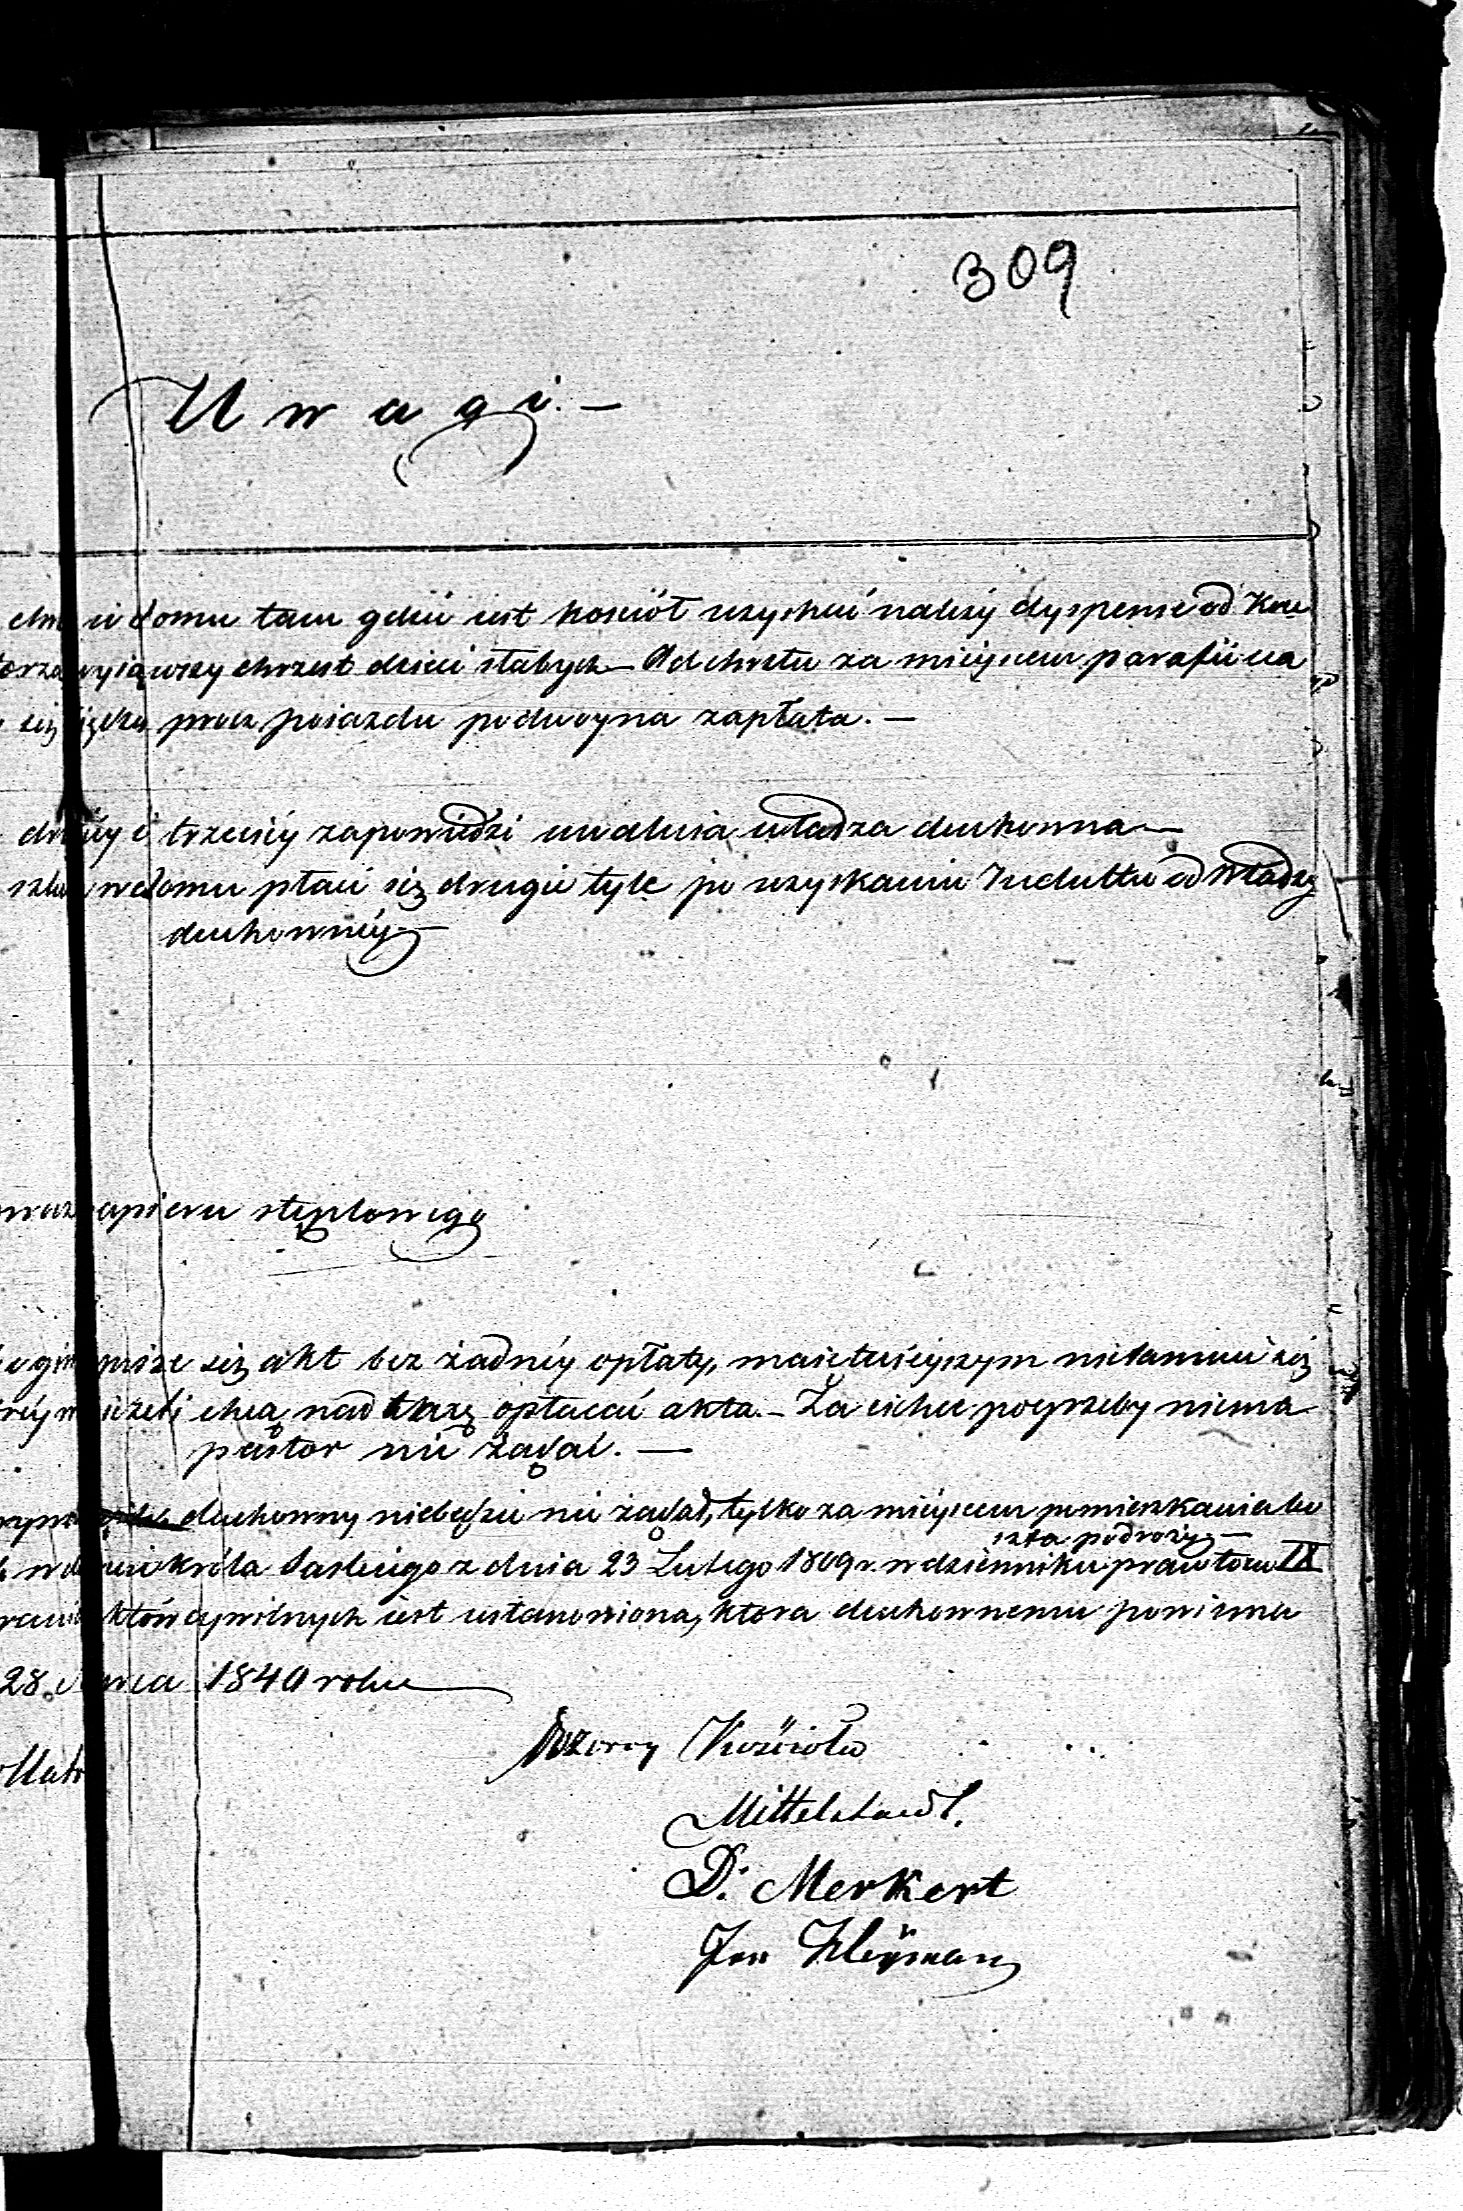 309
Uwagi. —
w domu tam gdzie iest kościół uzyskać należy dyspensę od Kon=
wyiąwszy chrzest dzieci słabych — Od chrztu za mieyscem parafii na
prócz poiazdu podwoyna zapłata. —
i trzeciéy zapowiedzi uwalnia władza duchowna —
w domu płaci się drugie tyle po uzyskaniu Indultu od Władzy
duchownéy —
papieru stęplowego
pisze się akt bez żadnéy opłaty, maiętnieyszym nietamuie się
ieżeli chcą nad taxę opłacać akta. — Za ciche pogrzeby niema
pastor nic żądać. —
duchowny niebędzie nic żądał, tylko za mieyscem pomieszkania ko
szta podroży —
króla Saskiego z dnia 23 Lutego 1809 r. w dzienniku praw tom IX
aktów cywilnych iest ustanowiona, ktora duchownemu powinna
28 1840 roku
Dozorcy Kościoła
Mittelstaedt.
D. Merkert
Jan Kleyman